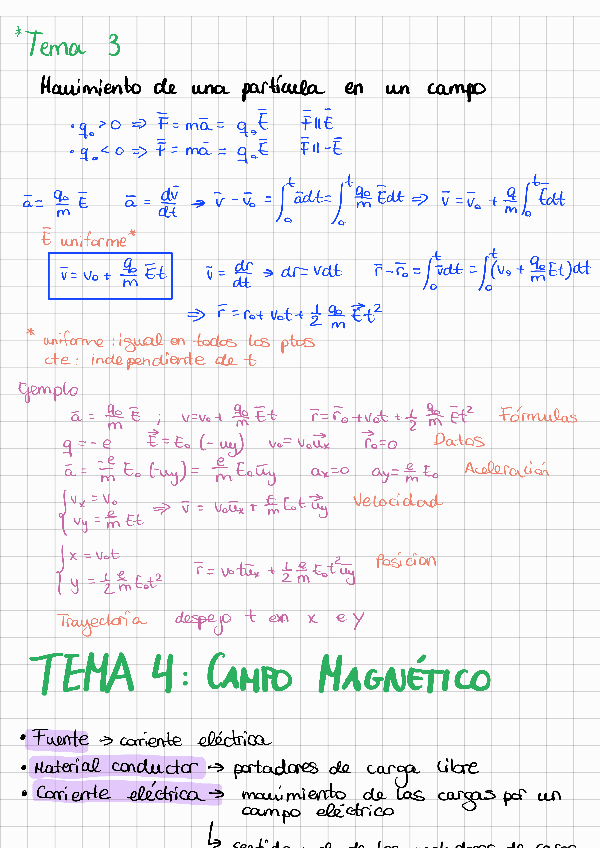 *Tema 3
Movimiento de una partícula en un campo
· q₀ > 0 ⇒ F̄ = mā = q₀Ē F̄ || Ē
· q₀ < 0 ⇒ F̄ = mā = q₀Ē F̄ || -Ē
ā = q₀/m Ē ā = dv̄/dt → v̄ - v̄₀ = ∫₀ᵗ ādt = ∫₀ᵗ q₀/m Ēdt ⇒ v̄ = v̄₀ + q/m ∫₀ᵗ Ēdt
Ē uniforme*
v̄ = v₀ + q₀/m Ēt v̄ = dr/dt → dr = vdt r̄ - r̄₀ = ∫₀ᵗ v̄dt = ∫₀ᵗ (v₀ + q₀/m Et)dt
⇒ r̄ = r₀ + v₀t + 1/2 q₀/m E⃗t²
* uniforme: igual en todos los ptos
cte: independiente de t
Ejemplo
ā = q₀/m Ē ; v = v₀ + q₀/m Ēt r̄ = r̄₀ + v₀t + 1/2 q₀/m Ēt² Fórmulas
q = -e E⃗ = E₀ (-uy) v₀ = v₀u⃗x r⃗₀ = 0 Datos
ā = -e/m E₀ (-uy) = e/m E₀ūy ax = 0 ay = e/m E₀ Aceleración
{ vx = v₀
vy = e/m Et ⇒ v̄ = v₀ūx + e/m E₀t u⃗y Velocidad
{ x = v₀t
y = 1/2 e/m E₀t² r̄ = v₀tūx + 1/2 e/m E₀t²ūy Posición
Trayectoria despejo t en x e y
TEMA 4: CAMPO MAGNÉTICO
• Fuente → corriente eléctrica
• Material conductor → portadores de carga libre
• Corriente eléctrica → movimiento de las cargas por un
campo eléctrico